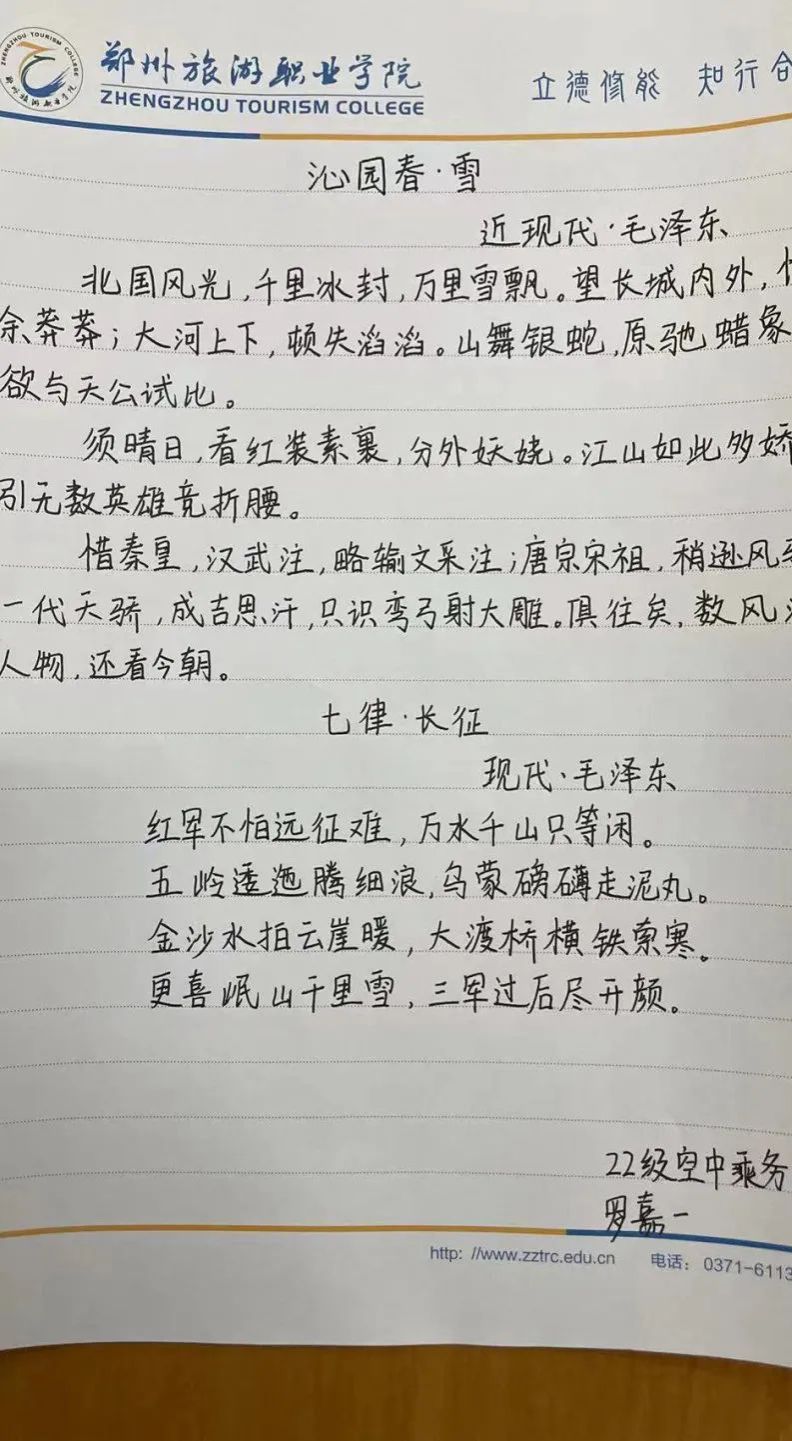 ZHENGZHOU TOURISM COLLEGE
郑州旅游职业学院
郑州旅游职业学院
ZHENGZHOU TOURISM COLLEGE
立德修能 知行合
沁园春·雪
近现代·毛泽东
北国风光,千里冰封,万里雪飘。望长城内外,
余莽莽;大河上下,顿失滔滔。山舞银蛇,原驰蜡象
欲与天公试比。
须晴日,看红装素裹,分外妖娆。江山如此多娇
引无数英雄竞折腰。
惜秦皇,汉武注,略输文采注;唐宗宋祖,稍逊风
一代天骄,成吉思汗,只识弯弓射大雕。俱往矣,数风
人物,还看今朝。
七律·长征
现代·毛泽东
红军不怕远征难,万水千山只等闲。
五岭逶迤腾细浪,乌蒙磅礴走泥丸。
金沙水拍云崖暖,大渡桥横铁索寒。
更喜岷山千里雪,三军过后尽开颜。
22级空中乘务
罗嘉一
http: //www.zztrc.edu.cn 电话: 0371-6113